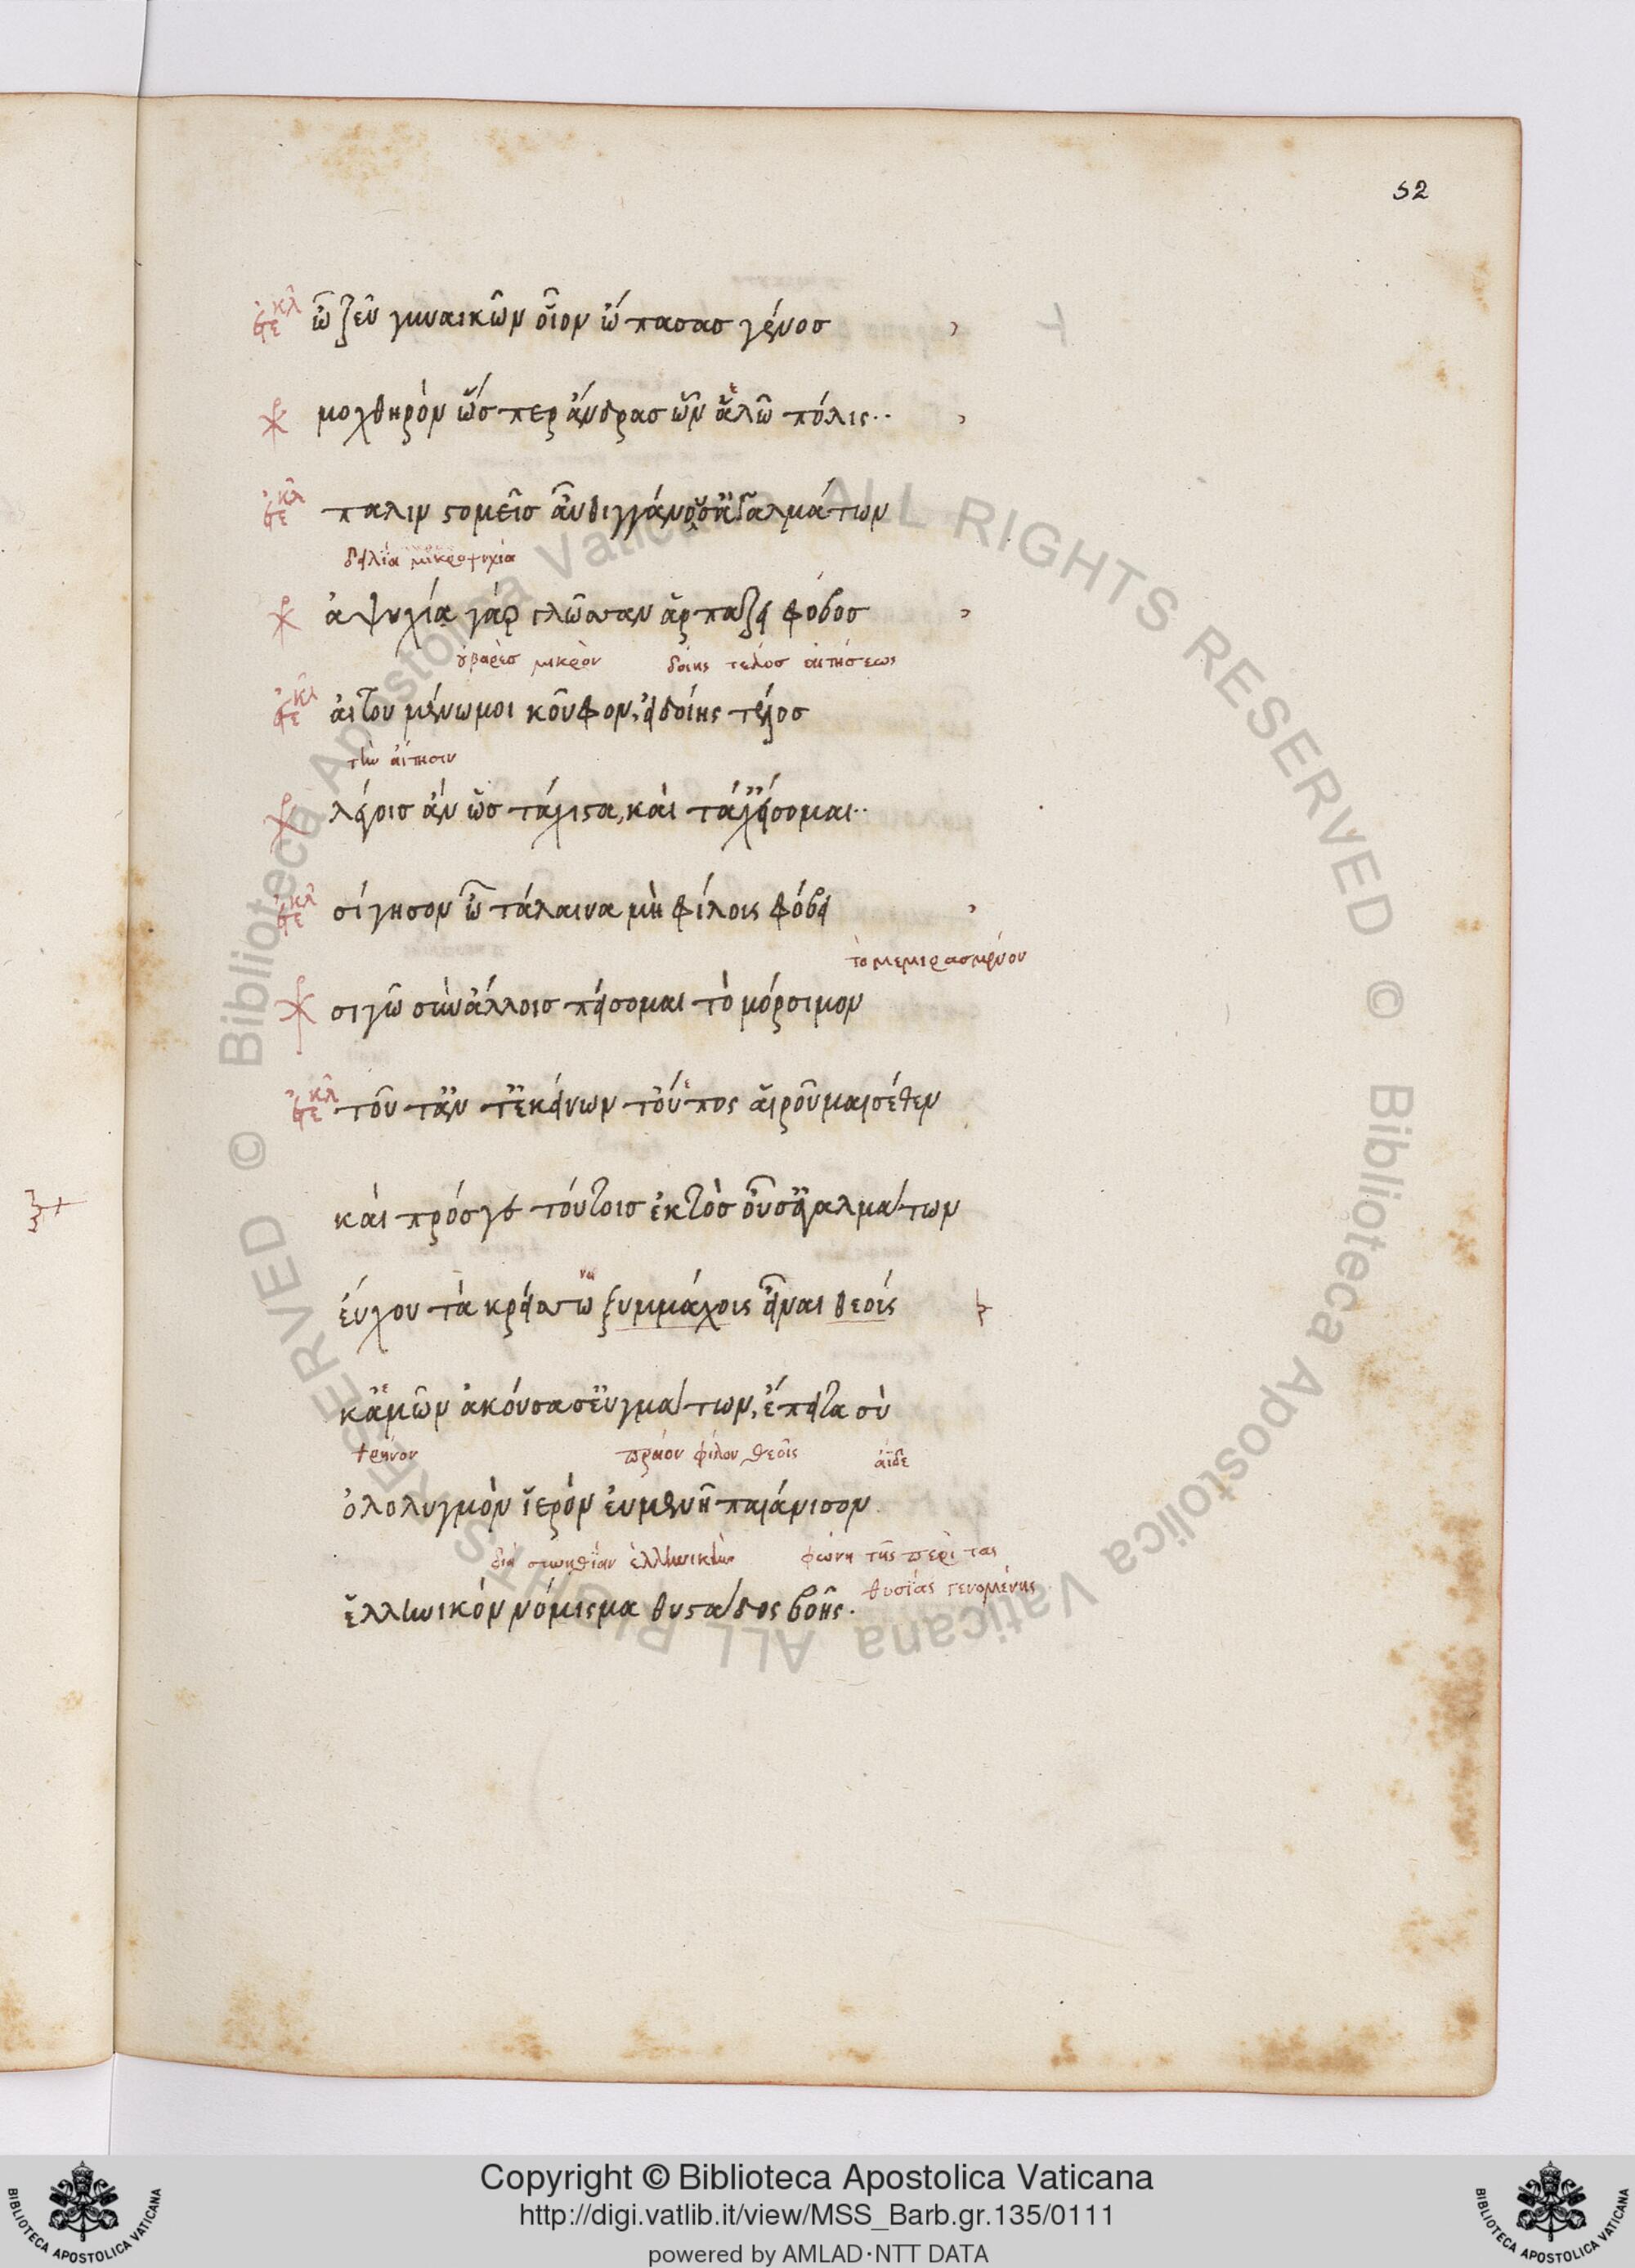 52
ἐτε κλ ὦ ζεῦ γυναικῶν οἷον ὤπασας γένος
χο μοχθηρὸν ὥσπερ ἄνδρας ὧν ἁλῶ πόλις..
ἐτε κλ παλιν στομεῖς αὖ θιγγάνουσ' ἀγαλμάτων
δειλία μικροψυχία
χο ἀψυχία γὰρ γλῶσσαν ἁρπάζει φόβος
ἀβαρὲς μικρὸν δοίης τέλος αἰτήσεως
ἐτε κλ αἰτουμένω μοι κοῦφον, εἰ δοίης τέλος
τὴν αἴτησιν
χο λέγοις ἂν ὡς τάχιστα, καὶ τάχ' εἴσομαι..
ἐτε κλ σίγησον ὦ τάλαινα μὴ φίλοις φόβει
τὸ μεμιρασμένον
χο σιγῶ σὺν ἄλλοις πείσομαι τὸ μόρσιμον
ἐτε κλ τοῦτ' ἀντ' ἐκείνων τοὔπος αἱροῦμαι σέθεν
καὶ πρόσγε τούτοις ἐκτὸς οὖσ' ἀγαλμάτων
εὔχου τὰ κρείσσω ξυμμάχους εἶναι θεούς
κἀμῶν ἀκούσασ' εὐγμάτων, ἔπειτα σὺ
θρῆνον πρᾶον φίλον θεοῖς ἄϊδε
ὀλολυγμὸν ἱερὸν εὐμενῆ παιάνισον
διὰ συνηθείαν ἑλληνικὴν φωνὴ τῆς περὶ τας
θυσίας γενομένης
ἑλληνικὸν νόμισμα θυστάδος βοῆς.
Copyright © Biblioteca Apostolica Vaticana
http://digi.vatlib.it/view/MSS_Barb.gr.135/0111
powered by AMLAD·NTT DATA
BIBLIOTECA APOSTOLICA VATICANA
BIBLIOTECA APOSTOLICA VATICANA
© Biblioteca Apostolica Vaticana ALL RIGHTS RESERVED © Biblioteca Apostolica Vaticana ALL RIGHTS RESERVED